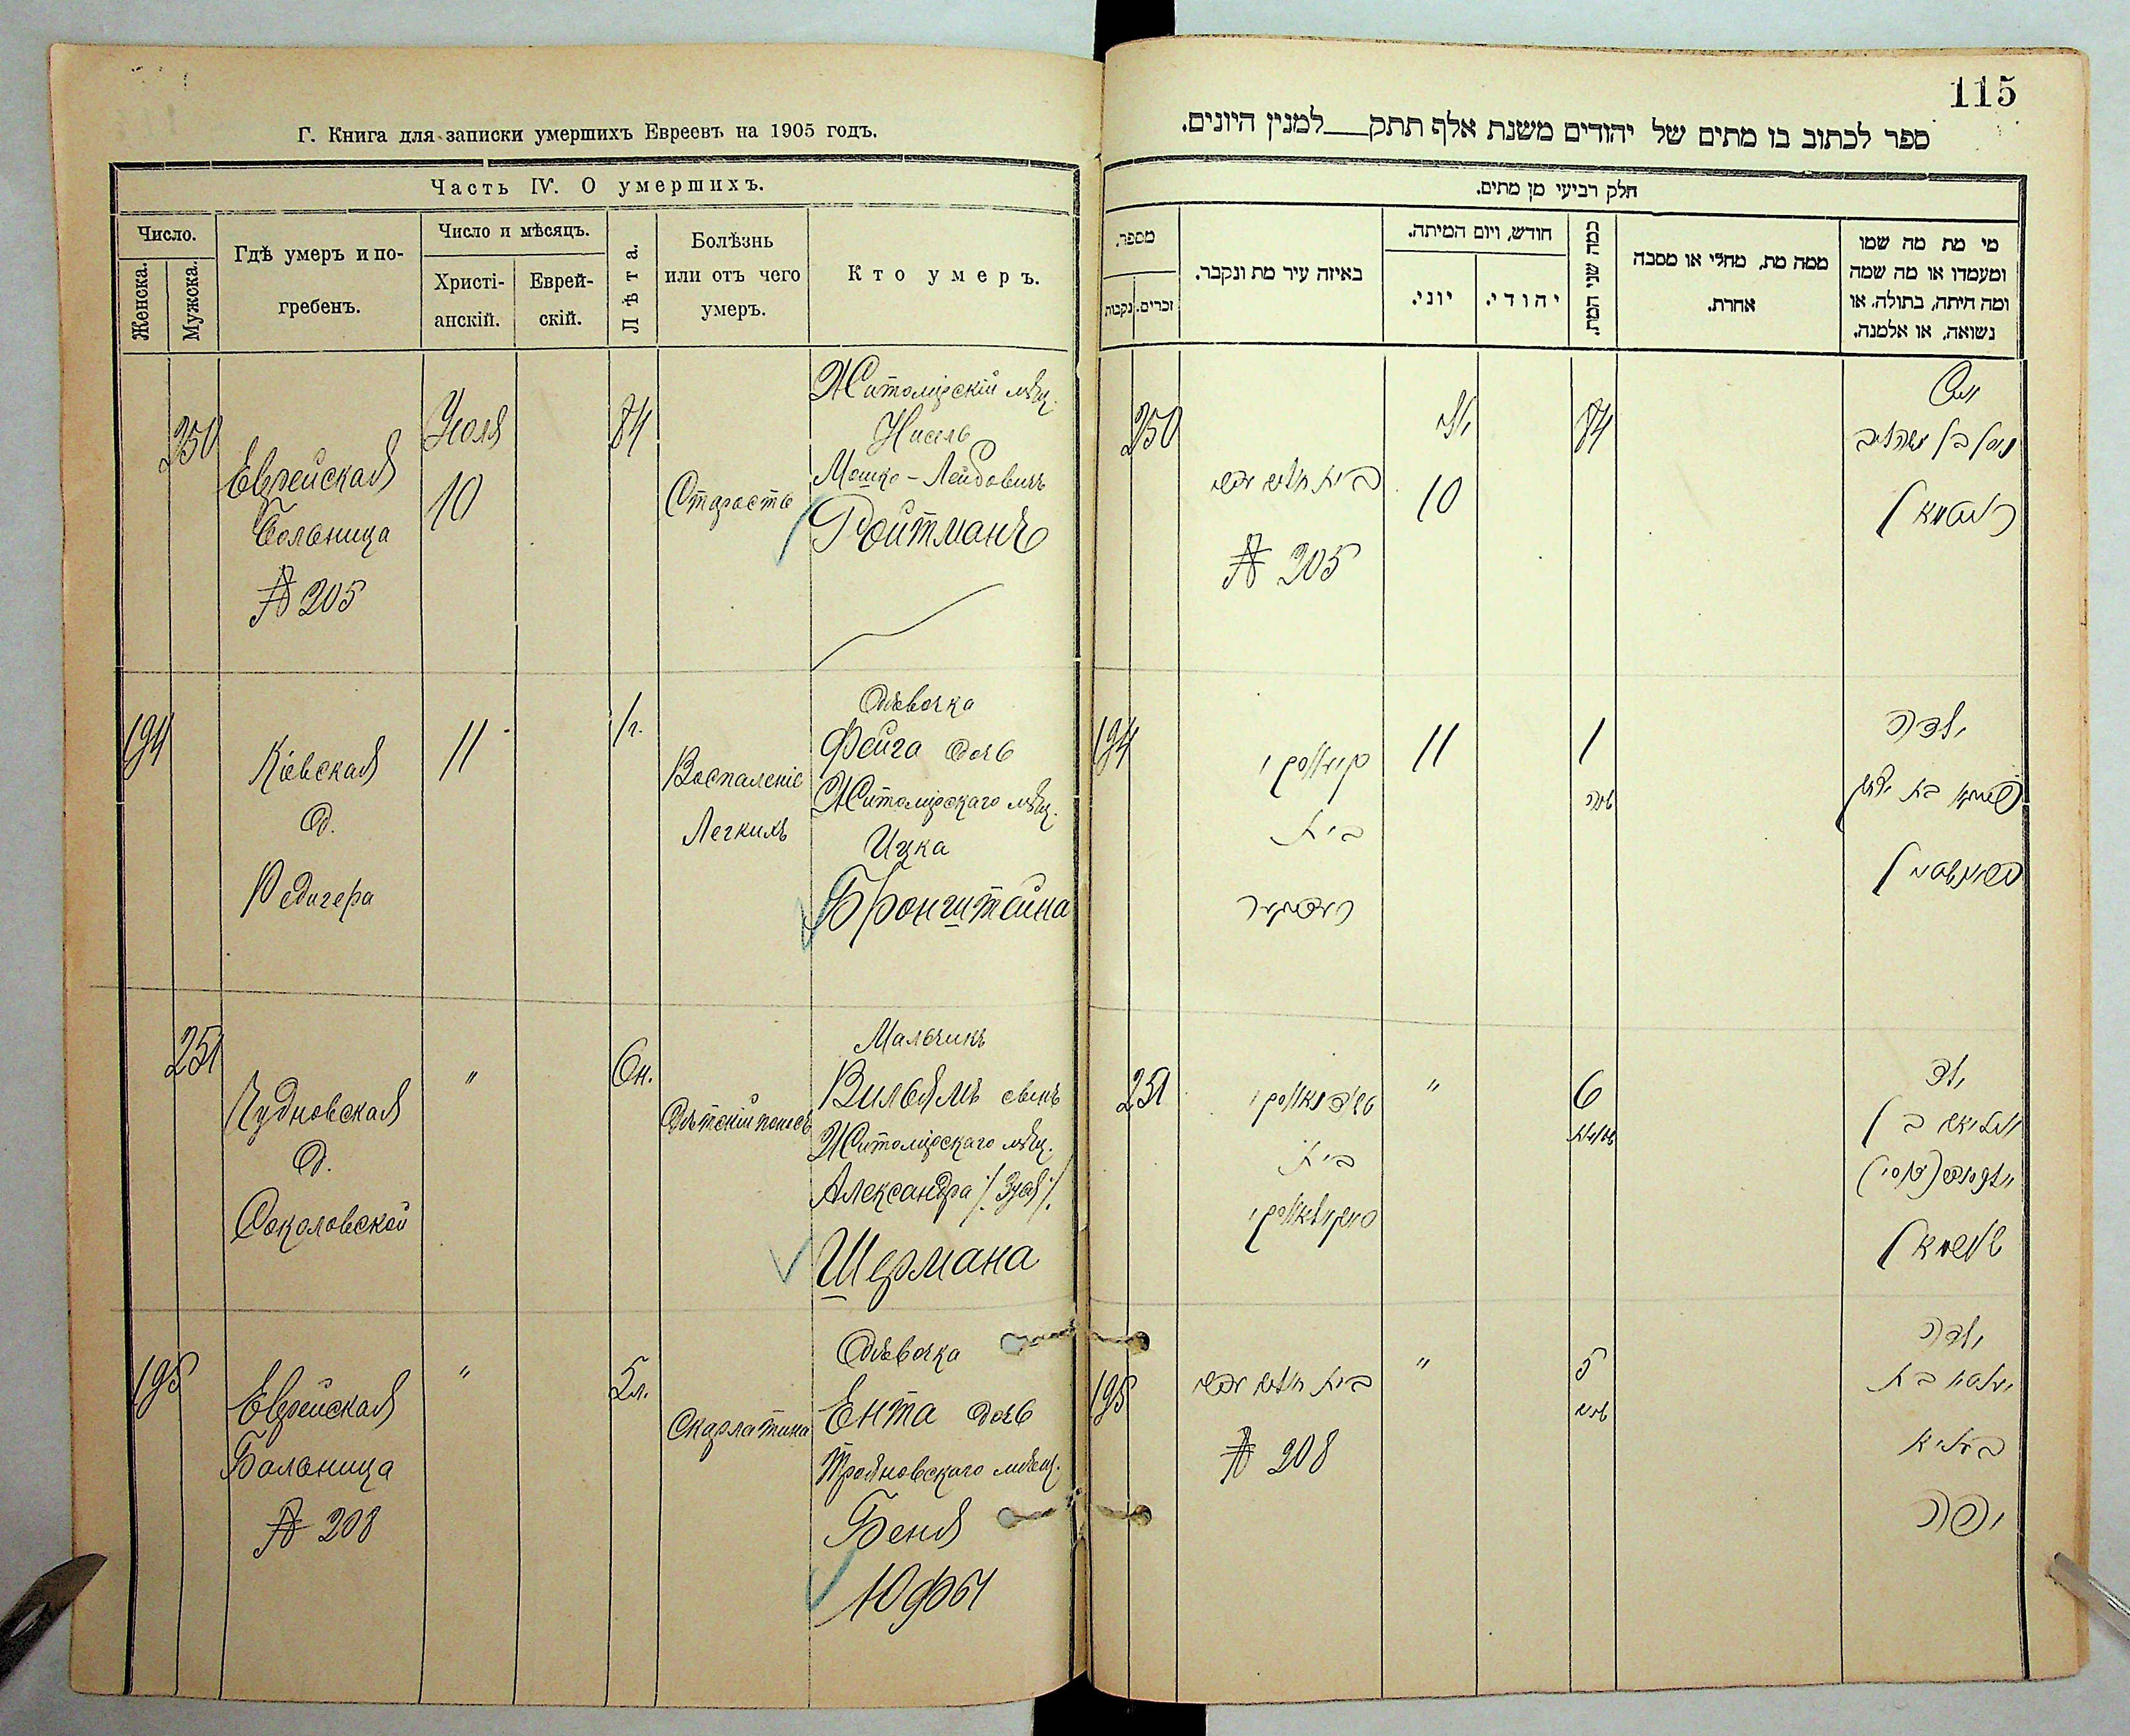 115
Г. Книга для записки умершихъ Евреевъ на 1905 годъ.
Часть IV. О умершихъ.
Число.
Женска.
Мужска.
Гдѣ умеръ и по-
гребенъ.
Число и мѣсяцъ.
Христі-
анскій.
Еврей-
скій.
Лѣта.
Болѣзнь
или отъ чего
умеръ.
Кто умеръ.
250
Еврейская
Больница
№ 205
Июля
10
84
Старость
Житомірскій мѣщ.
Нисель
Мошко-Лейбовичъ
Ройтманъ
194
Кіевская
д.
Редигера
11
1г.
Воспаленіе
Легкихъ
Дѣвочка
Фейга дочь
Житомірскаго мѣщ.
Ицка
Бронштейна
251
Чудновская
д.
Соколовской
"
6н.
Дѣтскій поносъ
Мальчикъ
Вильямъ сынъ
Житомірскаго мѣщ.
Александра /. Зуся ./
Шермана
195
Еврейская
Больница
№ 208
"
5л.
Скарлатина
Дѣвочка
Ента дочь
Трояновскаго мѣщ.
Беня
Юфы
ספר לכתוב בו מתים של יהודים משנת אלף תתק__למנין היונים.
חלק רביעי מן מתים.
מספר.
זכרים.
נקבות
באיזה עיר מת ונקבר.
חודש, ויום המיתה.
יוני.
יהודי.
כמה שני המת.
ממה מת, מחלי או מסבה
אחרת.
מי מת מה שמו
ומעמדו או מה שמה
ומה היתה, בתולה, או
נשואה, או אלמנה.
250
№ 205
10
84
רויטמאן
194
קיעווסקי
בית
11
1
שנה
ילדה
251
בית
"
6
ילד
שערמאן
195
№ 208
"
5
שנים
ילדה
יענטא בת
יופה